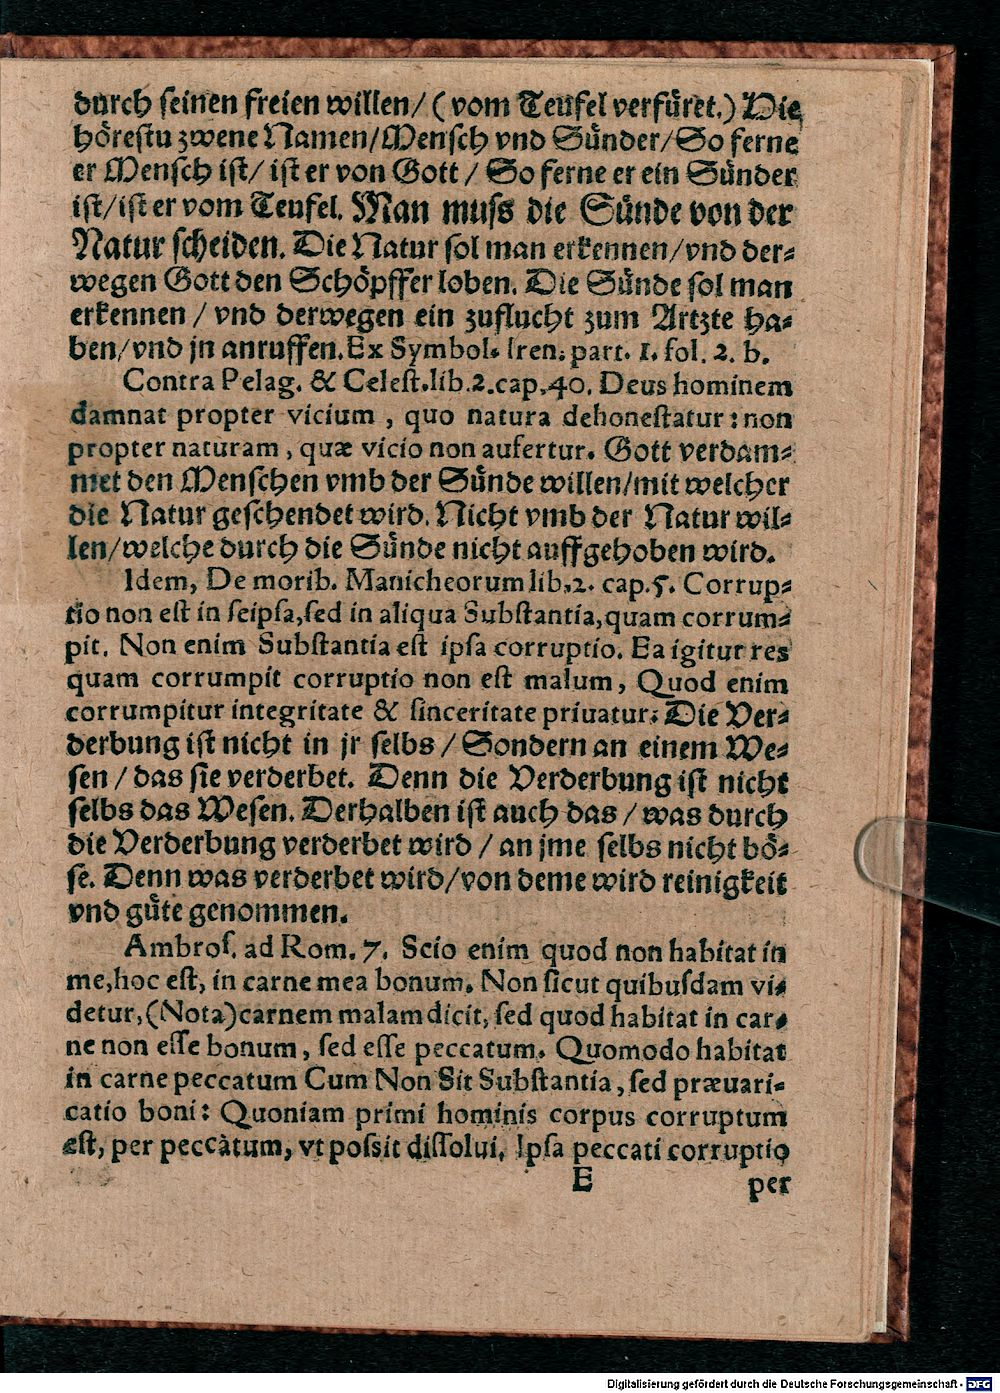 durch ſeinen freien willen/ (vom Teufel verfüret.) Die
höreſtu zwene Namen/Menſch vnd Sünder/So ferne
er Menſch iſt/ iſt er von Gott / So ferne er ein Sünder
iſt/iſt er vom Teufel. Man muſs die Sünde von der
Natur ſcheiden. Die Natur ſol man erkennen/vnd der⸗
wegen Gott den Schöpffer loben. Die Sünde ſol man
erkennen / vnd derwegen ein zuflucht zum Artzte ha⸗
ben/vnd jn anruffen. Ex Symbol. Iren. part. 1. fol. 2. b.
Contra Pelag. & Celeſt. lib. 2. cap. 40. Deus hominem
damnat propter vicium , quo natura dehoneſtatur: non
propter naturam , quæ vicio non aufertur. Gott verdam⸗
met den Menſchen vmb der Sünde willen/mit welcher
die Natur geſchendet wird. Nicht vmb der Natur wil⸗
len/welche durch die Sünde nicht auffgehoben wird.
Idem, De morib. Manicheorum lib. 2. cap. 5. Corrup⸗
tio non eſt in ſeipſa, ſed in aliqua Subſtantia, quam corrum⸗
pit. Non enim Subſtantia eſt ipſa corruptio. Ea igitur res
quam corrumpit corruptio non eſt malum, Quod enim
corrumpitur integritate & ſinceritate priuatur. Die Ver⸗
derbung iſt nicht in jr ſelbs / Sondern an einem We⸗
ſen / das ſie verderbet. Denn die Verderbung iſt nicht
ſelbs das Weſen. Derhalben iſt auch das / was durch
die Verderbung verderbet wird / an jme ſelbs nicht bö⸗
ſe. Denn was verderbet wird/von deme wird reinigkeit
vnd güte genommen.
Ambroſ. ad Rom. 7. Scio enim quod non habitat in
me, hoc eſt, in carne mea bonum. Non ſicut quibuſdam vi⸗
detur, (Nota) carnem malam dicit, ſed quod habitat in car⸗
ne non eſſe bonum, ſed eſſe peccatum. Quomodo habitat
in carne peccatum Cum Non Sit Subſtantia, ſed præuari⸗
catio boni: Quoniam primi hominis corpus corruptum
eſt, per peccàtum, vt poſsit diſſolui. Ipſa peccati corruptio
E per
Digitalisierung gefördert durch die Deutsche Forschungsgemeinschaft - DFG